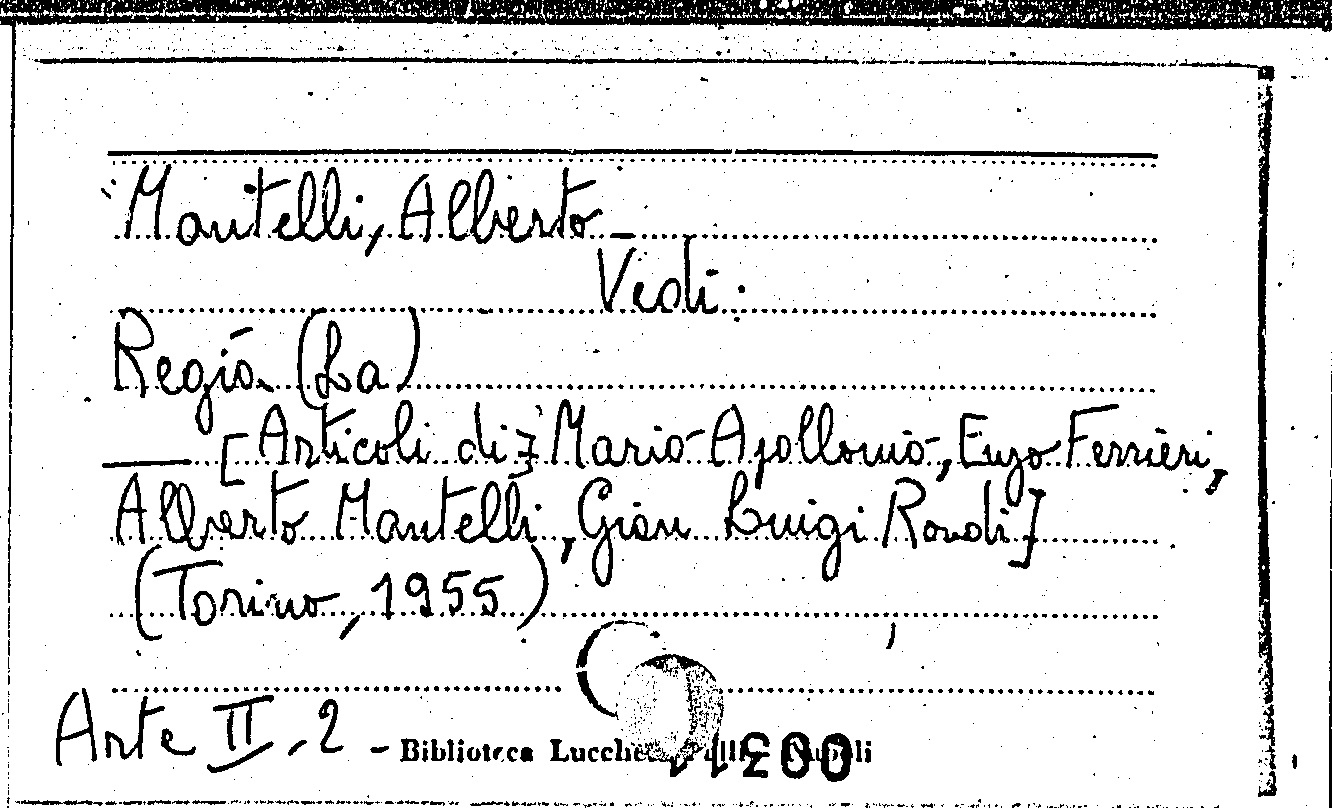 Mantelli, Alberto –
Vedi:
Regia (La)
— [Articoli di] Mario Apollonio, Enzo Ferrieri,
Alberto Mantelli, Gian Luigi Rondi]
(Torino, 1955)
Arte II. 2 – Biblioteca